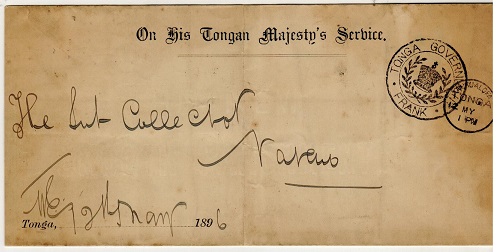 On His Tongan Majesty's Service.
TONGA GOVERN
FRANK
ONGA
MY
1 PM
The Sub Collector
Vavau
Tonga, 1896